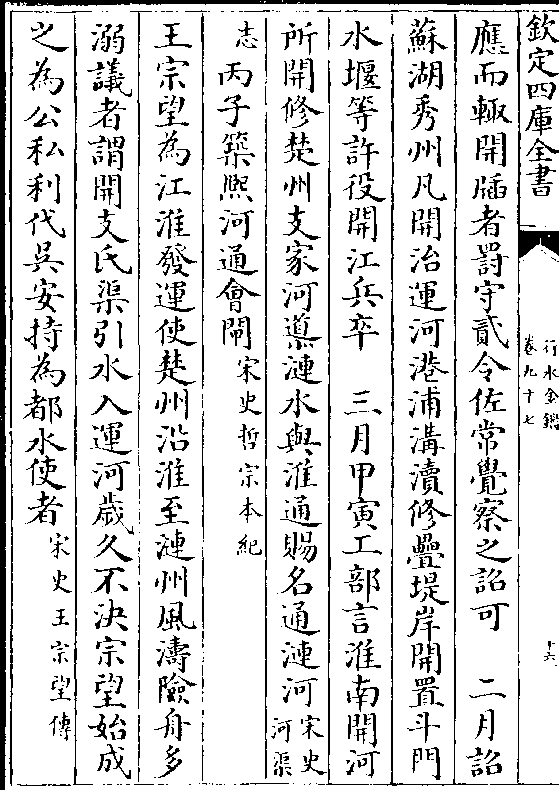 欽定四庫全書
行水金鑑
卷九十七
十六
應而輙開牐者罰守貳令佐常覺察之詔可　二月詔
蘇湖秀州凡開治運河港浦溝瀆修疊堤岸開置斗門
水堰等許役開江兵卒　三月甲寅工部言淮南開河
所開修楚州支家河導漣水與淮通賜名通漣河宋史河渠
志丙子築熈河通會闗宋史哲宗本紀
王宗望為江淮發運使楚州沿淮至漣州風濤險舟多
溺議者謂開支氏渠引水入運河歲久不決宗望始成
之為公私利代吳安持為都水使者宋史王宗望傳